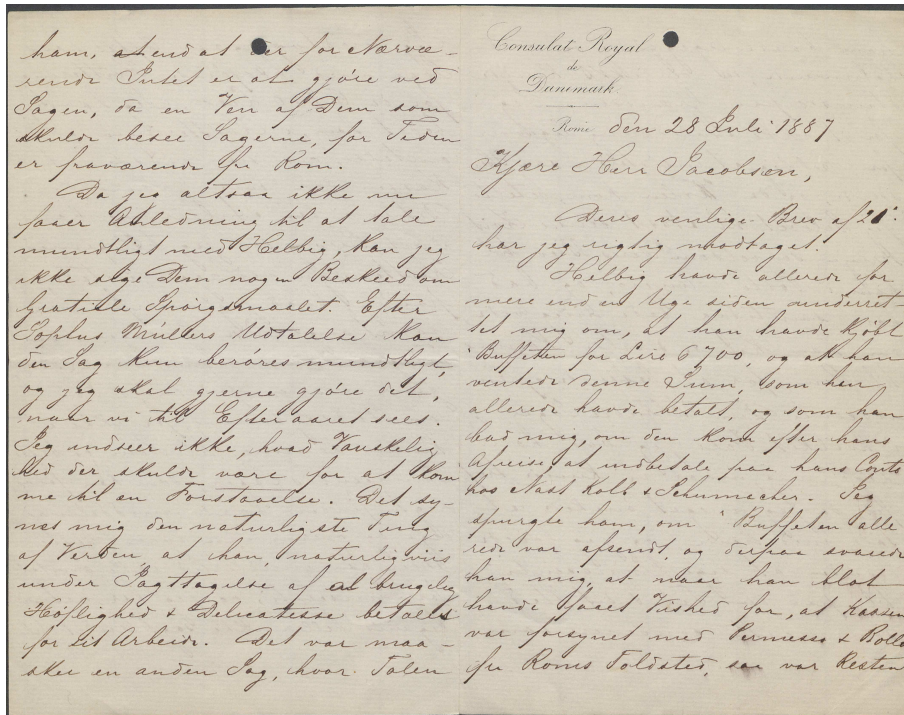 ham, at end at der for Nærvæ-
rende Intet er at gjöre ved
Sagen, da en Ven af Dem som
skulde besee Sagerne, for Tiden
er fraværende fra Rom.
Da jeg altsaa ikke nu
faaer Anledning til at tale
mundtligt med Helbig, kan jeg
ikke sige Dem nogen Beskeed om
Gratiale Spörgsmaalet. Efter
Sophus Müllers Udtalelse kan
den Sag kun beröres mundtligt,
og jeg skal gjerne gjöre det,
naar vi til Efteraaret sees.
Jeg indseer ikke, hvad Vanskelig
hed der skulde være for at kom
me til en Forstaaelse. Det sy-
nes mig den naturligste Ting
af Verden, at han, naturligviis
under Iagttagelse af al brugelig
Höflighed & Delicatesse betales
for sit Arbeide. Det var maa-
skee en anden Sag, hvor Talen
Consulat Royal
de
Danemark
Rome den 28 Juli 1887
Kjære Herr Jacobsen,
Deres venlige Brev af 21.
har jeg rigtig modtaget.
Helbig havde allerede for
mere end en Uge siden underret-
tet mig om, at han havde kjöbt
Buffeten for Lire 6700, og at han
ventede denne Sum, som han
allerede havde betalt, og som han
bad mig, om den kom efter hans
Afreise, at indbetale paa hans Conto
hos Nast Kolb & Schumacher. Jeg
spurgte ham, om Buffeten alle
rede var afsendt, og derpaa svarede
han mig, at naar han blot
havde faaet Vished for, at Kassen
var forsynet med Permesso & Bollo
fra Roms Toldsted, saa var Resten